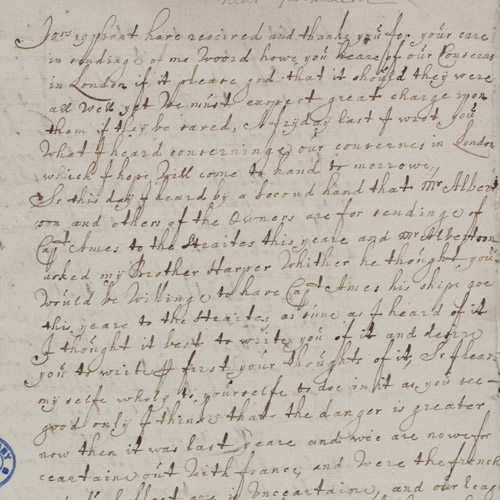 I have received and thanke you for your care
in sending of me woord howe you heare of our Conserns
in London if it please god that it should they were
all well yet we must expect great charge upon
them if they be saved, A fryday last I wrot you
what I heard conserninge our consernes in London
which I hope will come to hand to morrowe,
So this day I heard by a second hand that mr Alber
son and others of the Owners are for sending of
Capt Ames to the Straites this yeare and mr Albertson
asked my Brother Harper whither he thought you
would be willinge to have Capt Ames his ship goe
this yeare to the Straites, as sune as I heard of it
I thought it best to write you of it and desire
you to write first your thoughts of it, So I leave
my selfe wholy to yourselfe to doe in it as you see
good only I thinke that the danger is greater
now then it was last yeare and wee are nowe for
ceartaine out with france, and were the french
are in uncertaine, and our